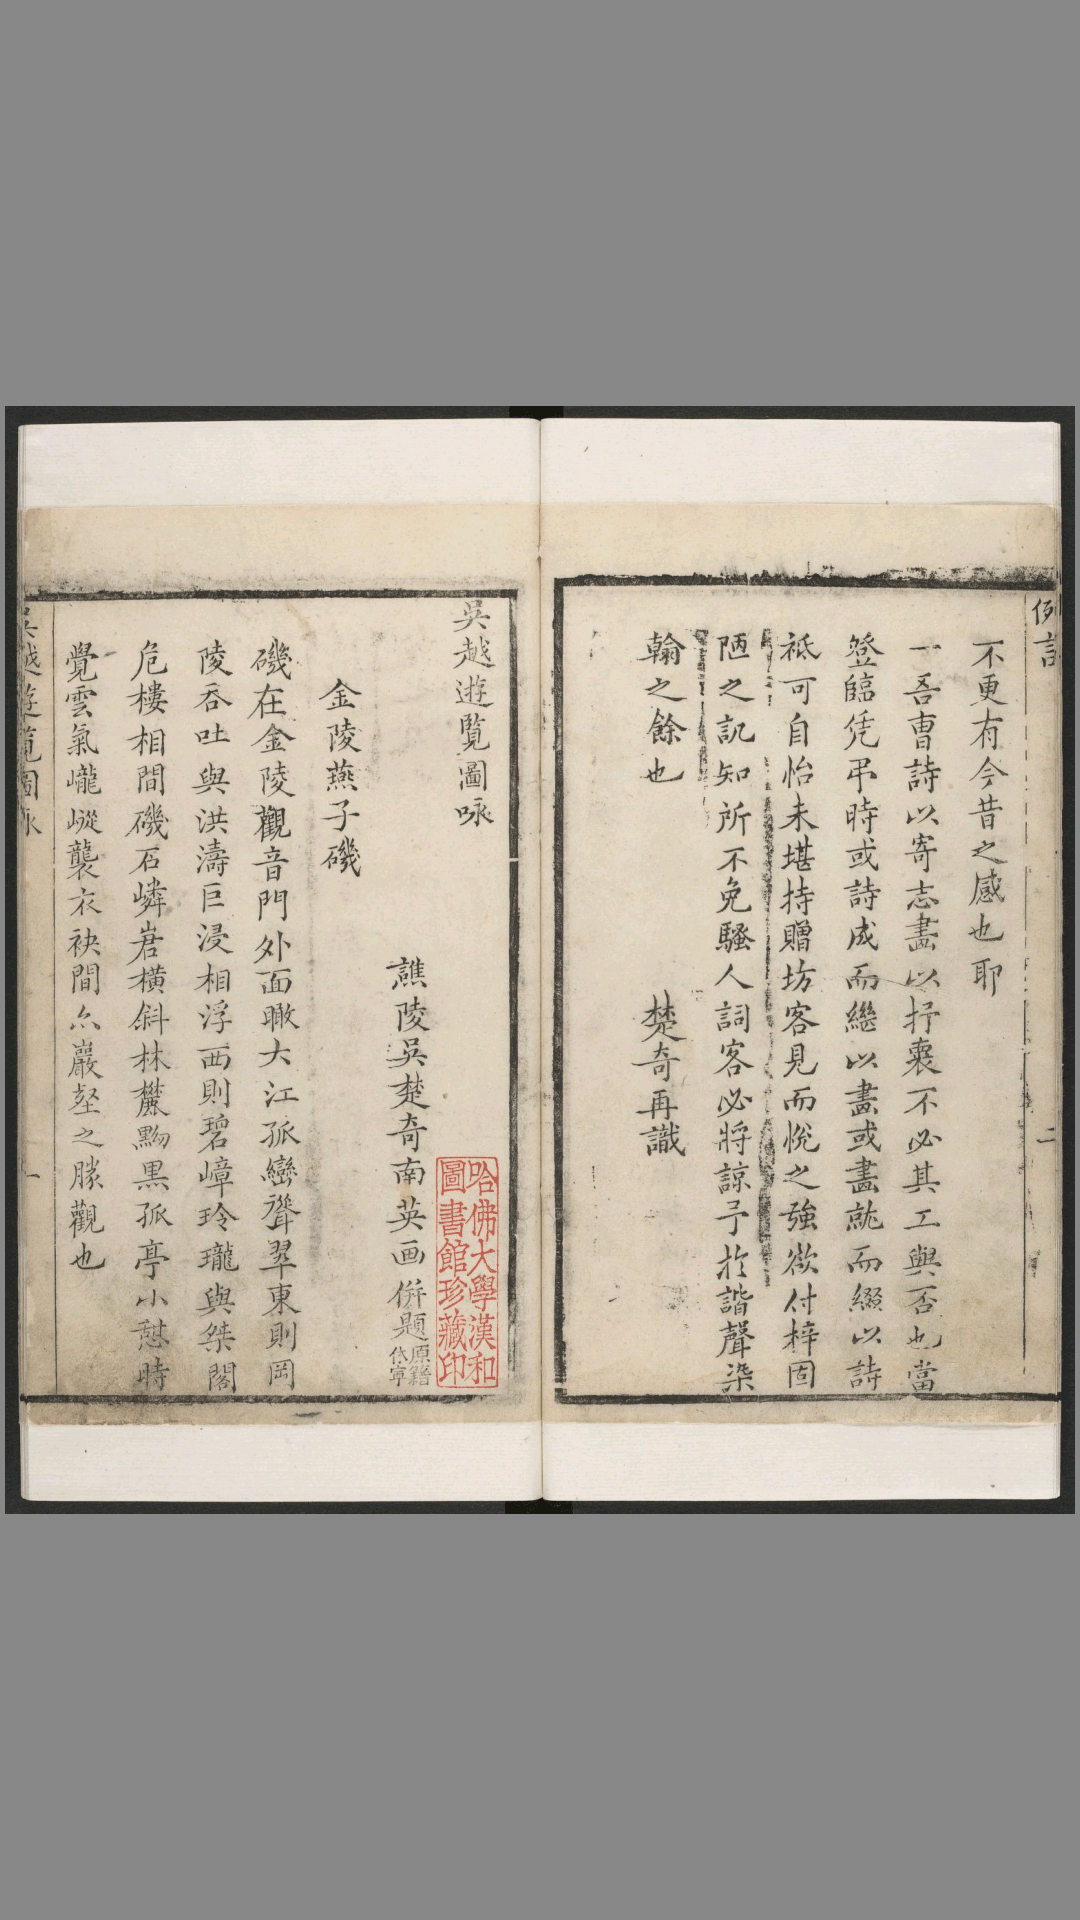 例言
二
不更有今昔之感也耶
一吾曹詩以寄志畵以抒裵不必其工與否也當
登臨凭弔時或詩成而繼以畵或畵就而綴以詩
祗可自怡未堪持贈坊客見而悅之強欲付梓固
陋之訊知所不免騷人詞客必將諒予於諧聲染
翰之餘也
楚奇再識
吳越遊覧圖咏
譙陵吳楚奇南英画併題
原籍
休寧
哈佛大學漢和
圖書館珍藏印
金陵燕子磯
磯在金陵觀音門外面瞰大江孤巒聳翠東則岡
陵吞吐與洪濤巨浸相浮西則碧嶂玲瓏與桀閣
危樓相間磯石嶙峋橫斜林麓黝黒孤亭小憇時
覺雲氣巃嵷襲衣袂間亦巖壑之勝觀也
吳越遊覧圖咏
一